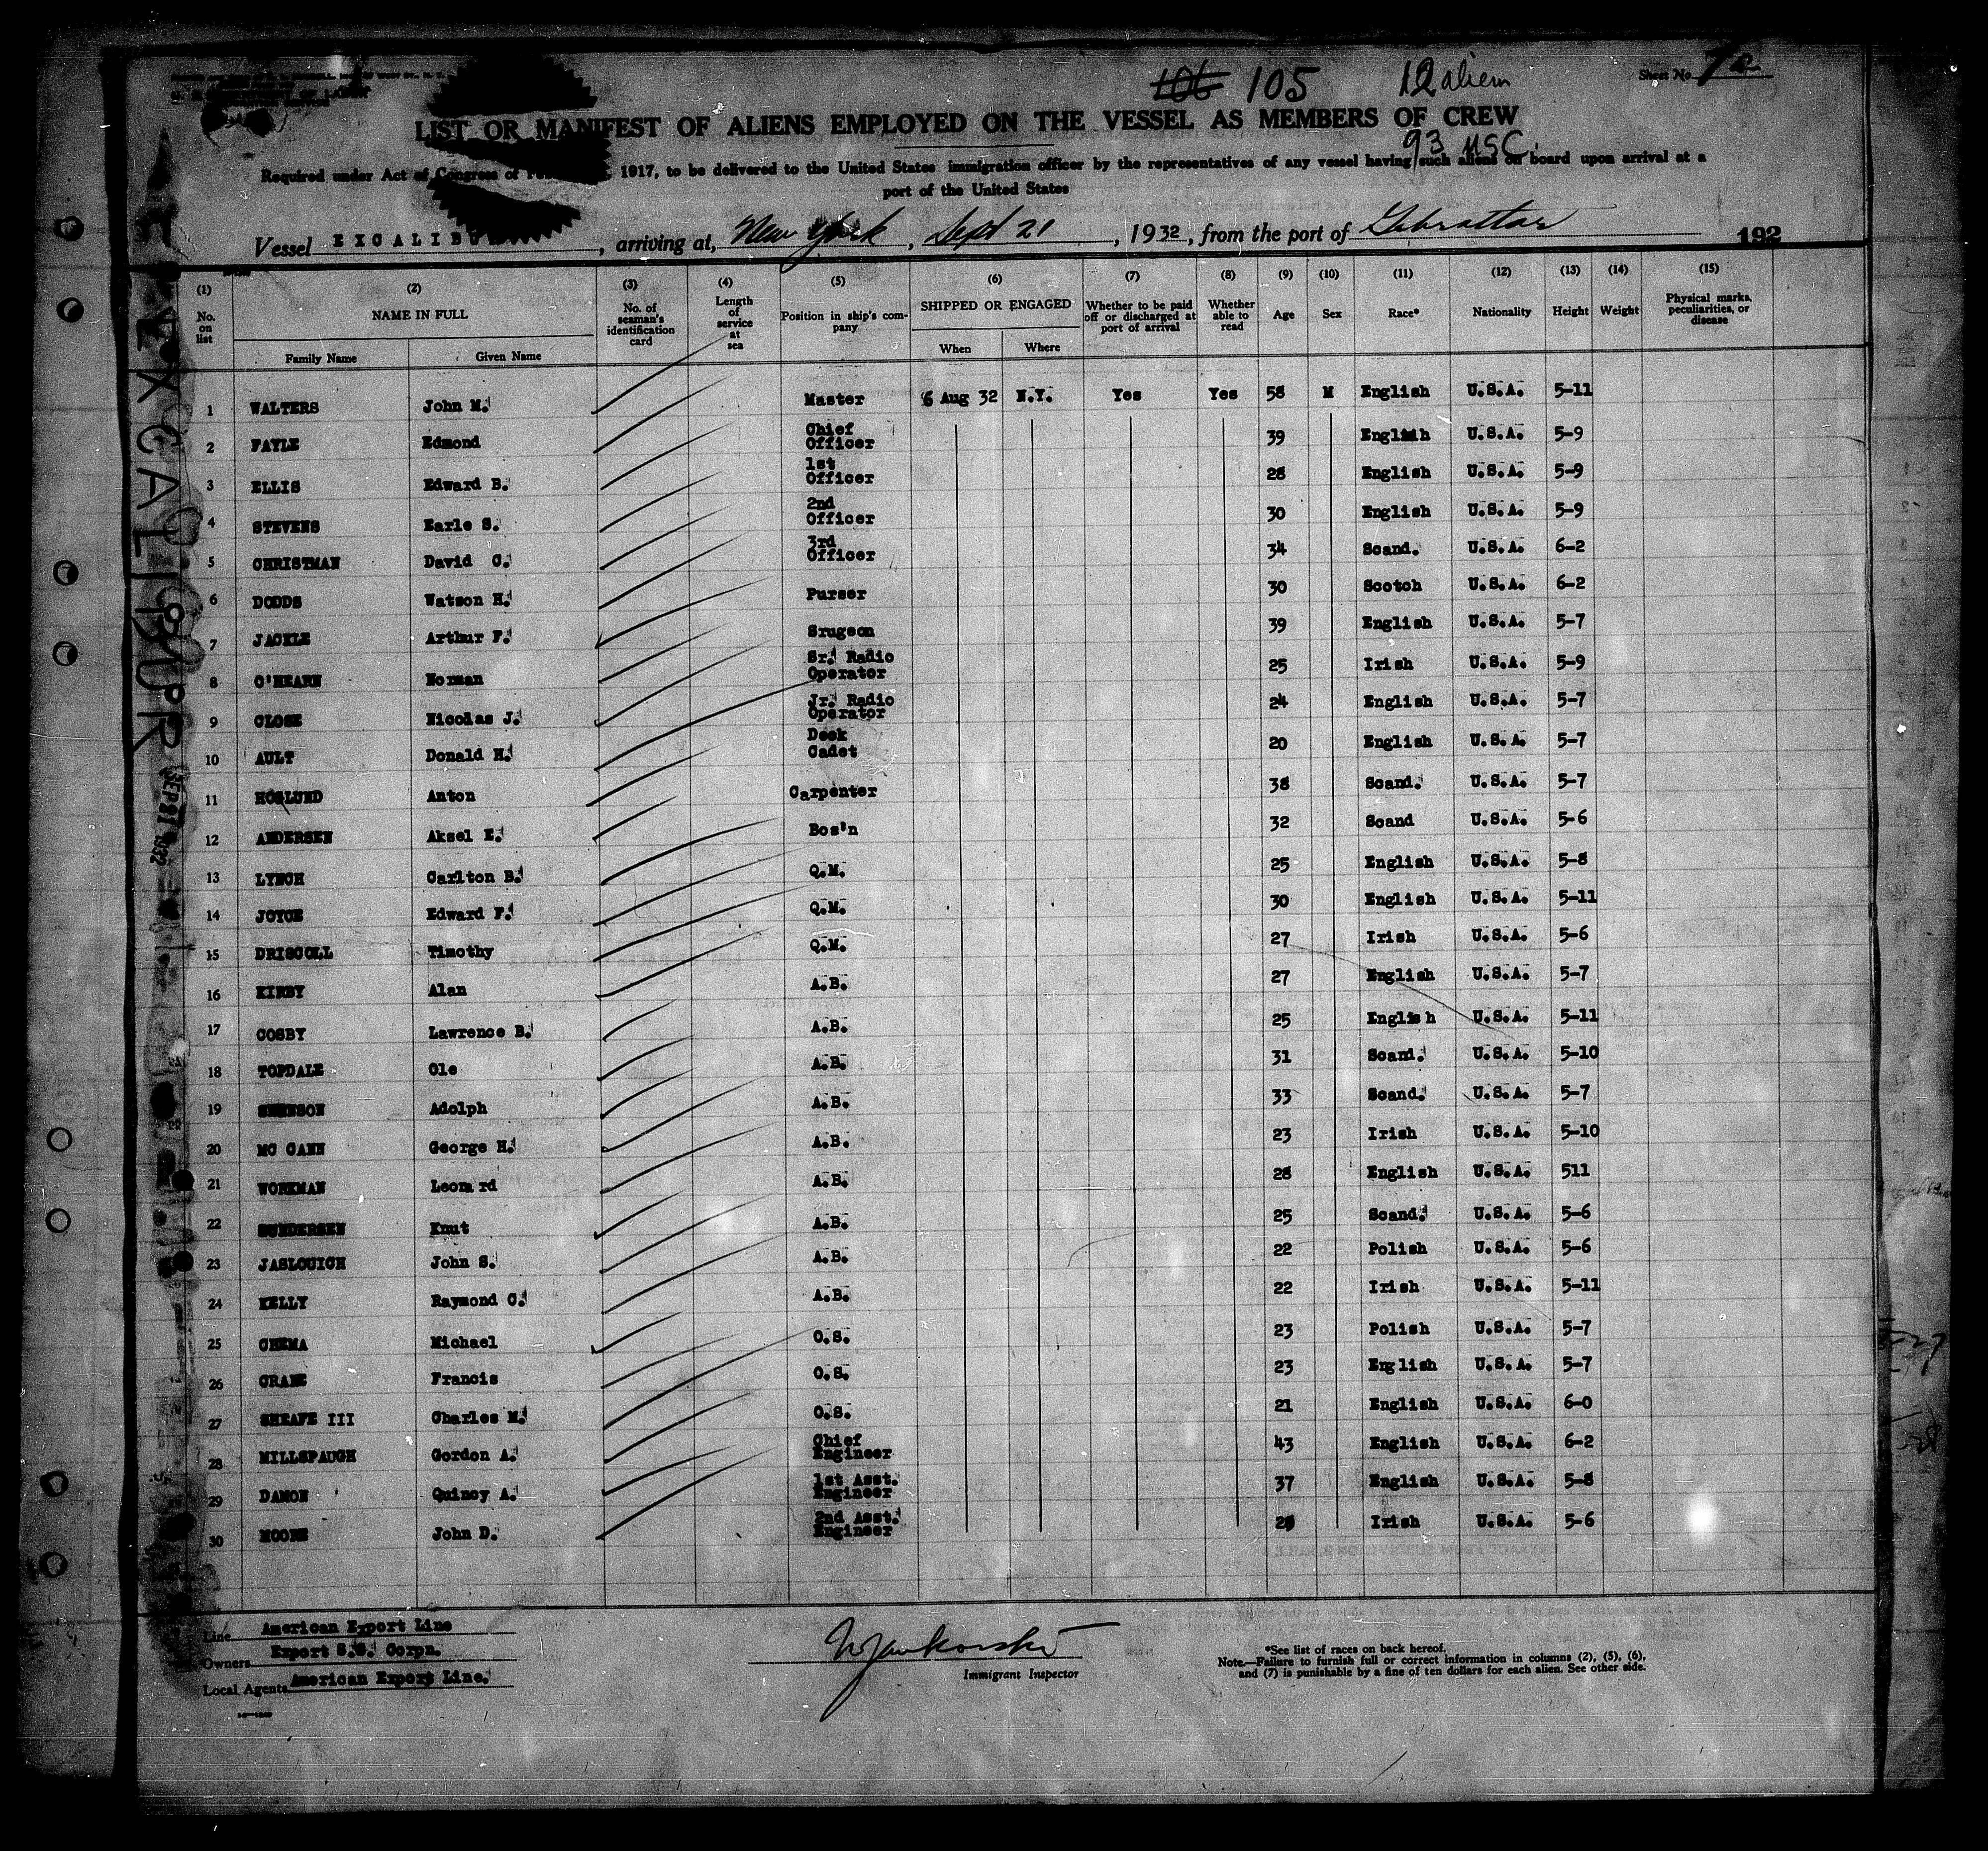 105 12 aliem
Sheet No.
LIST OR MANIFEST OF ALIENS EMPLOYED ON THE VESSEL AS MEMBERS OF CREW
93 USC.
Required under Act of Congress of 1917, to be delivered to the United States immigration officer by the representatives of any vessel having such aliens on board upon arrival at a
port of the United States
Vessel EXCALIBU , arriving at, New York , Sept 21 , 1932, from the port of Gibraltar 192
EXCALIBUR
SEP 21 1932
(1) (2) (3) (4) (5) (6) (7) (8) (9) (10) (11) (12) (13) (14) (15)
No. on list NAME IN FULL No. of seaman's identification card Length of service at sea Position in ship's company SHIPPED OR ENGAGED Whether to be paid off or discharged at port of arrival Whether able to read Age Sex Race* Nationality Height Weight Physical marks, peculiarities, or disease
Family Name Given Name When Where
1 WALTERS John M. Master 6 Aug 32 N.Y. Yes Yes 58 M English U.S.A. 5-11
2 FAYLE Edmond Chief Officer 39 English U.S.A. 5-9
3 ELLIS Edward B. 1st Officer 28 English U.S.A. 5-9
4 STEVENS Earle S. 2nd Officer 30 English U.S.A. 5-9
5 CHRISTMAN David C. 3rd Officer 34 Scand. U.S.A. 6-2
6 DODDS Watson H. Purser 30 Scotch U.S.A. 6-2
7 JACKLE Arthur F. Srugeon 39 English U.S.A. 5-7
8 O'HEARN Norman Sr. Radio Operator 25 Irish U.S.A. 5-9
9 CLOSE Nicolas J. Jr. Radio Operator 24 English U.S.A. 5-7
10 AULT Donald H. Deck Cadet 20 English U.S.A. 5-7
11 HOGLUND Anton Carpenter 38 Scand. U.S.A. 5-7
12 ANDERSEN Aksel E. Bos'n 32 Scand U.S.A. 5-6
13 LYNCH Carlton B. Q.M. 25 English U.S.A. 5-8
14 JOYCE Edward F. Q.M. 30 English U.S.A. 5-11
15 DRISCOLL Timothy Q.M. 27 Irish U.S.A. 5-6
16 KIRBY Alan A.B. 27 English U.S.A. 5-7
17 COSBY Lawrence B. A.B. 25 English U.S.A. 5-11
18 TOPDALE Ole A.B. 31 Scand. U.S.A. 5-10
19 SWENSON Adolph A.B. 33 Scand. U.S.A. 5-7
20 MC CANN George H. A.B. 23 Irish U.S.A. 5-10
21 WORKMAN Leonard A.B. 28 English U.S.A. 511
22 GUNDERSEN Knut A.B. 25 Scand. U.S.A. 5-6
23 JASLOUICH John S. A.B. 22 Polish U.S.A. 5-6
24 KELLY Raymond C. A.B. 22 Irish U.S.A. 5-11
25 CHEMA Michael O.S. 23 Polish U.S.A. 5-7
26 CRANE Francis O.S. 23 English U.S.A. 5-7
27 SHEAFE III Charles M. O.S. 21 English U.S.A. 6-0
28 MILLSPAUGH Gordon A. Chief Engineer 43 English U.S.A. 6-2
29 DAMON Quincy A. 1st Asst. Engineer 37 English U.S.A. 5-8
30 MOORE John D. 2nd Asst. Engineer Irish U.S.A. 5-6
Line American Export Line
Owners Export S.S. Corpn.
Local Agents American Export Line.
Immigrant Inspector
*See list of races on back hereof.
Note.—Failure to furnish full or correct information in columns (2), (5), (6),
and (7) is punishable by a fine of ten dollars for each alien. See other side.